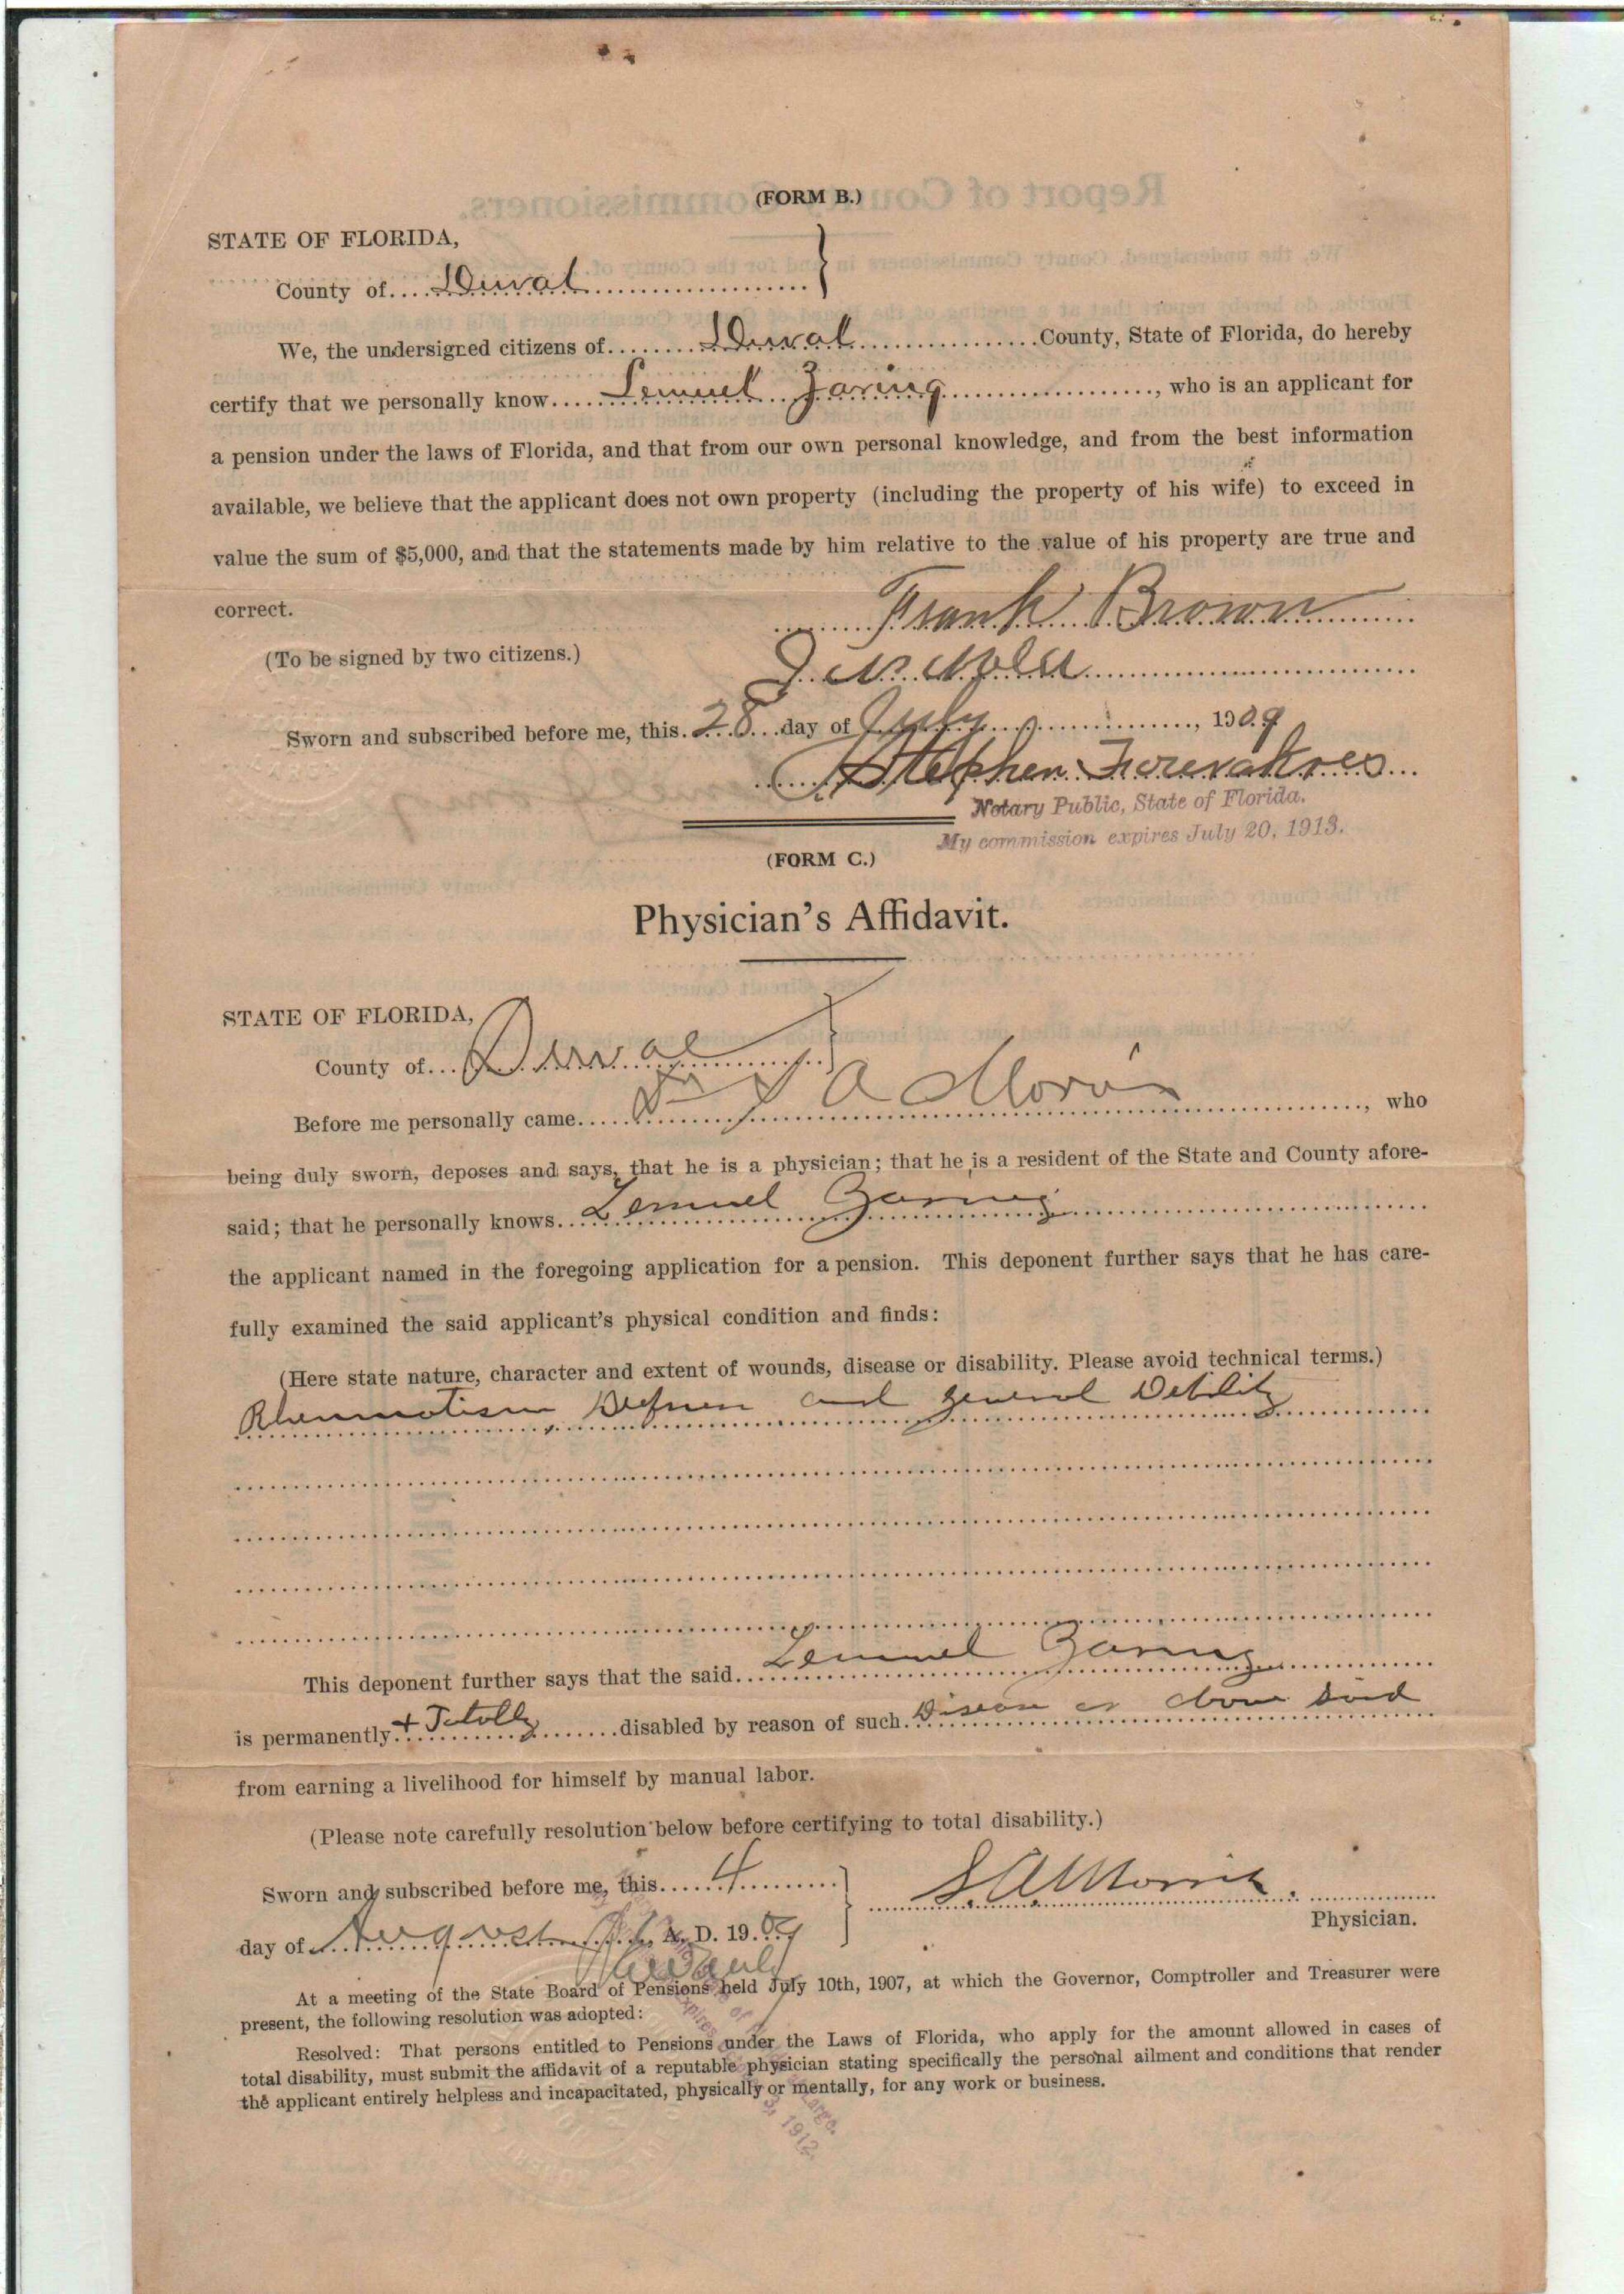 (FORM B.)
STATE OF FLORIDA,
County of....Duval....................
We, the undersigned citizens of.........Duval..................County, State of Florida, do hereby
certify that we personally know.....Lemuel Zaring..................., who is an applicant for
a pension under the laws of Florida, and that from our own personal knowledge, and from the best information
available, we believe that the applicant does not own property (including the property of his wife) to exceed in
value the sum of $5,000, and that the statements made by him relative to the value of his property are true and
correct.
Frank Brown
(To be signed by two citizens.)
Sworn and subscribed before me, this 28 day of July, 1909
Stephen
Notary Public, State of Florida.
My commission expires July 20, 1913.
(FORM C.)
Physician's Affidavit.
STATE OF FLORIDA,
County of...Duval
Before me personally came.....Dr A, who
being duly sworn, deposes and says, that he is a physician; that he is a resident of the State and County afore-
said; that he personally knows...Lemuel Zaring
the applicant named in the foregoing application for a pension. This deponent further says that he has care-
fully examined the said applicant's physical condition and finds:
(Here state nature, character and extent of wounds, disease or disability. Please avoid technical terms.)
Rheumatism, and general Debility
This deponent further says that the said...Lemuel Zaring
is permanently + Totally.......disabled by reason of such Disease as above said
from earning a livelihood for himself by manual labor.
(Please note carefully resolution below before certifying to total disability.)
Sworn and subscribed before me, this.....4........
S. A. Morris
Physician.
day of August A. D. 1909
At a meeting of the State Board of Pensions held July 10th, 1907, at which the Governor, Comptroller and Treasurer were
present, the following resolution was adopted:
Resolved: That persons entitled to Pensions under the Laws of Florida, who apply for the amount allowed in cases of
total disability, must submit the affidavit of a reputable physician stating specifically the personal ailment and conditions that render
the applicant entirely helpless and incapacitated, physically or mentally, for any work or business.